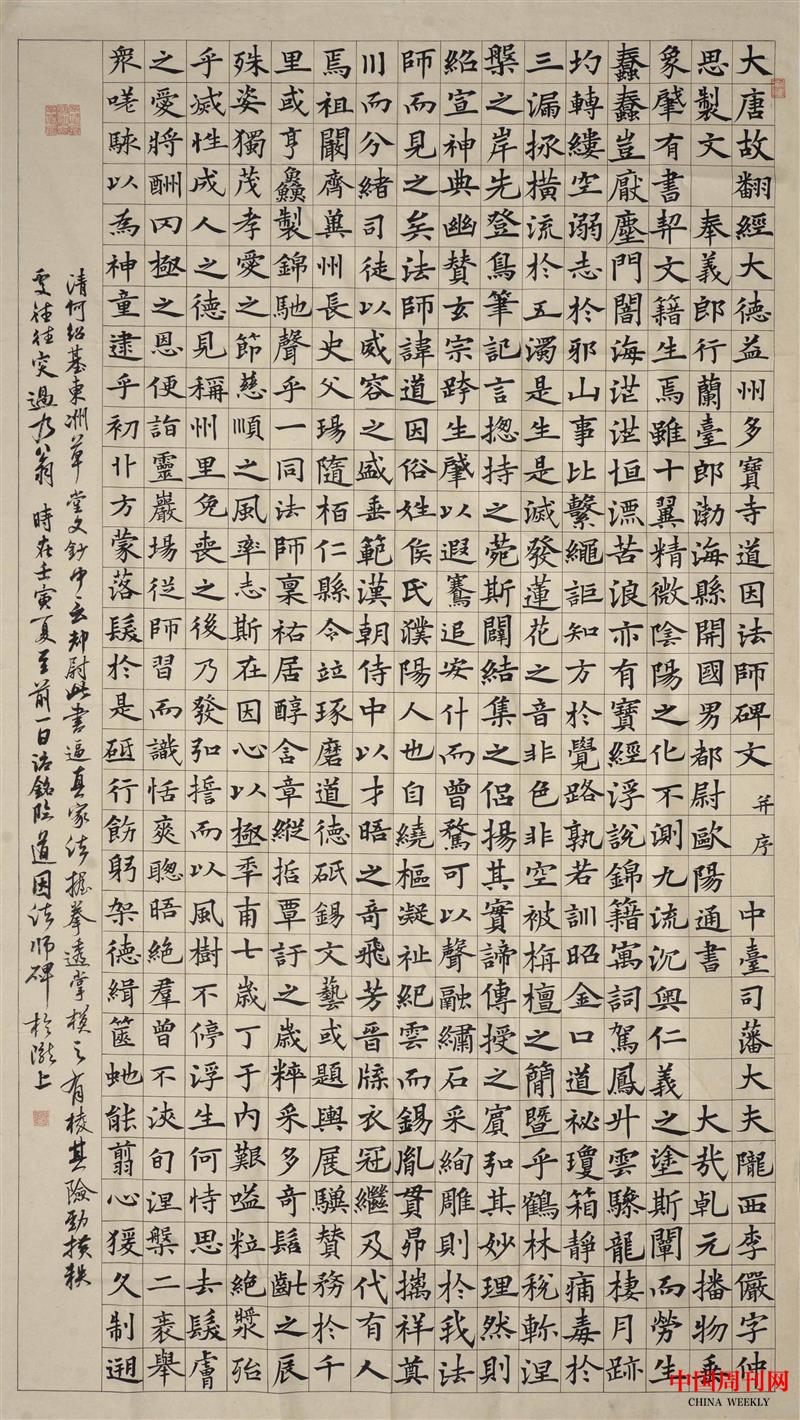 大唐故翻經大德益州多寶寺道因法師碑文 并序 中臺司藩大夫隴西李儼字仲
思製文 奉義郎行蘭臺郎渤海縣開國男都尉歐陽通書 大㢤乹元播物垂
象肇有書契文籍生焉雖十翼精微陰陽之化不測九流沉奥仁義之塗斯闡而勞生
蠢蠢豈厭塵門闇海茫茫恒漂苦浪亦有寶經浮說錦籍寓詞駕鳳升雲驂龍棲月跡
均轉縷空溺志於邪山事比繫繩詎知方於覺路孰若訓昭金口道祕瓊箱靜痛毒於
三漏拯橫流於五濁是生是滅發蓮花之音非色非空被栴檀之簡暨乎鶴林稅軫涅
槃之岸先登鳥筆記言揔持之菀斯闢結集之侶揚其實諦傳授之賓弘其妙理然則
紹宣神典幽贊玄宗跨生肇以遐騫追安什而曾騖可以聲融繡石采絢雕則於我法
師而見之矣法師諱道因俗姓侯氏濮陽人也自繞樞凝祉紀雲而錫胤貫昴摛祥奠
川而分緒司徒以威容之盛垂範漢朝侍中以才晤之奇飛芳晉牒衣冠繼及代有人
焉祖闞齊冀州長史父瑒隨栢仁縣令竝琢磨道德砥錫文藝或題輿展驥贊務於千
里或亨鱻製錦馳聲乎一同法師稟祐居醇含章縱哲覃訏之歲粹采多奇髫齓之辰
殊姿獨茂孝愛之節慈順之風率志斯在因心以極年甫七歲丁于內艱嗌粒絕漿殆
乎滅性成人之德見稱州里免喪之後乃發弘誓而以風樹不停浮生何恃思去髮膚
之愛將酬罔極之恩便詣靈巖場從師習而識恬爽聰晤絕羣曾不浹旬涅槃二袠舉
衆嗟駭以為神童逮乎初丱方蒙落髮於是砥行飭躬架德緝篋虵能翦心猨久制遡
清何紹基東洲草堂文鈔中云都尉此書逼真家法握拳透掌模之有棱其險勁橫軼
處往往突過乃翁 時在壬寅夏至前一日 銘臨道因法師碑於隴上
中国周刊网
CHINA WEEKLY